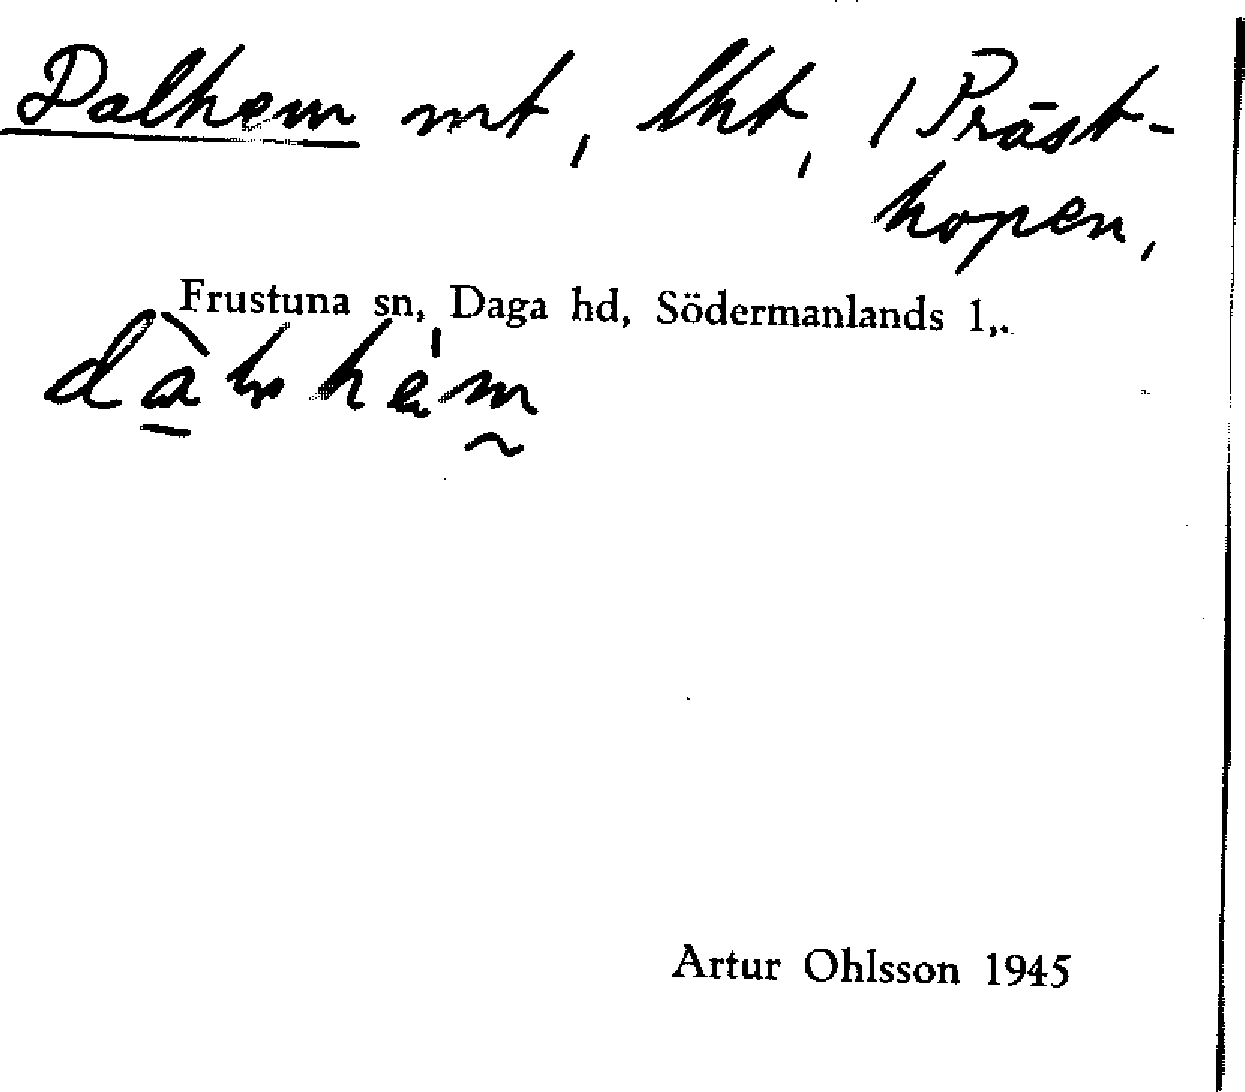 Dalhem mt, lht, /Präst-
hopen,
Frustuna sn, Daga hd, Södermanlands l,.
Artur Ohlsson 1945